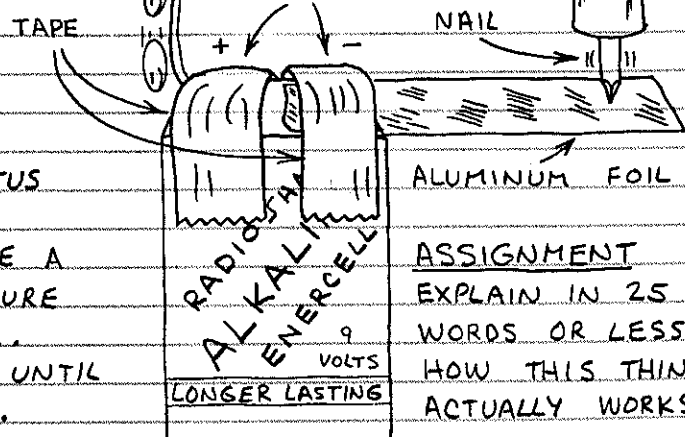 TAPE
NAIL
+
-
ALUMINUM FOIL
E A
.
UNTIL
.
RADIO SHA
ALKALI
ENERCELL
9
VOLTS
LONGER LASTING
ASSIGNMENT
EXPLAIN IN 25
WORDS OR LESS
HOW THIS THIN
ACTUALLY WORKS